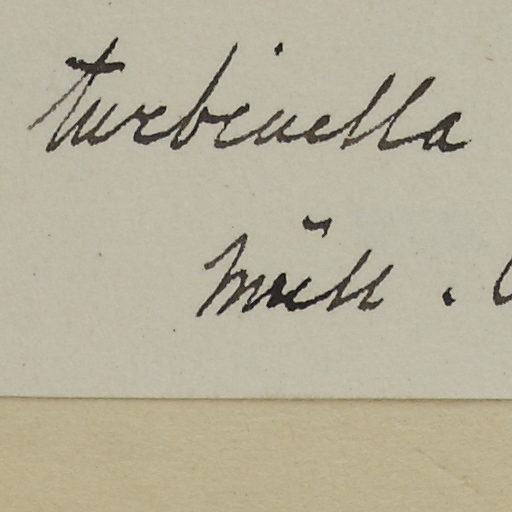 turbinella
Müll.